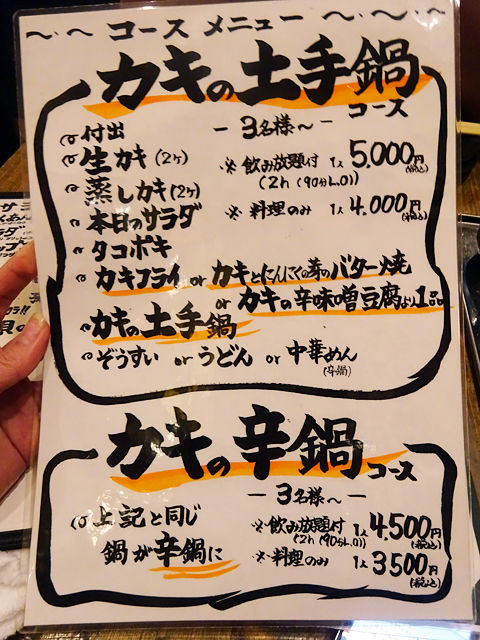 ～・～・ コース メニュー ～・～・
カキの土手鍋
コース
付出
生カキ(2ヶ)
蒸しカキ(2ヶ)
本日のサラダ
タコポキ
カキフライ or カキとにんにくの芽のバター焼
or カキの辛味噌豆腐より1品
カキの土手鍋
ぞうすい or うどん or 中華めん
(辛鍋)
－ 3名様～ －
※ 飲み放題付 1人 5,000円(税込)
(2h (90分L.O))
※ 料理のみ 1人 4,000円(税込)
カキの辛鍋 コース
－ 3名様～ －
上記と同じ
鍋が辛鍋に
※飲み放題付 1人 4,500円(税込)
(2h (90分L.O))
※料理のみ 1人 3500円(税込)